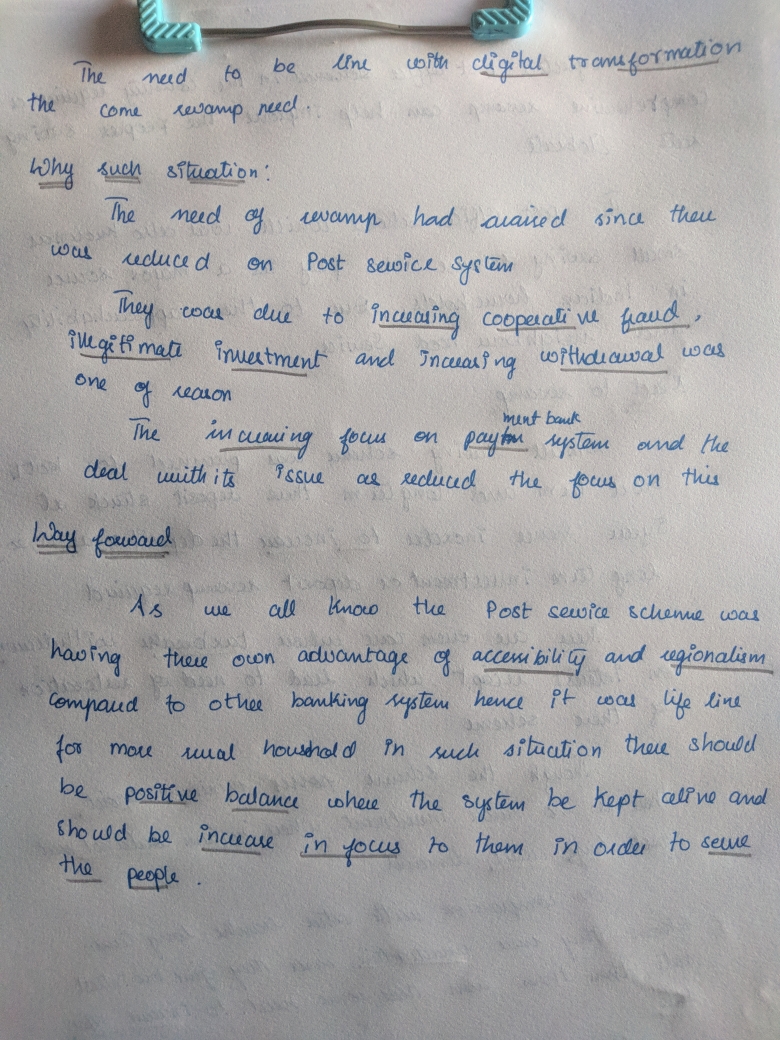 The need to be line with digital transformation
the come revamp need.
Why such situation:
The need of revamp had araised since there
was reduced on Post service system
They was due to increasing cooperative fraud,
illegitimate investment and increasing withdrawal was
one of reason
The increasing focus on payment bank system and the
deal with its issue as reduced the focus on this
Way forward
As we all know the Post service scheme was
having there own advantage of accessibility and regionalism
compared to other banking system hence it was life line
for more rural houshold in such situation there should
be positive balance where the system be kept alive and
should be increase in focus to them in order to serve
the people.